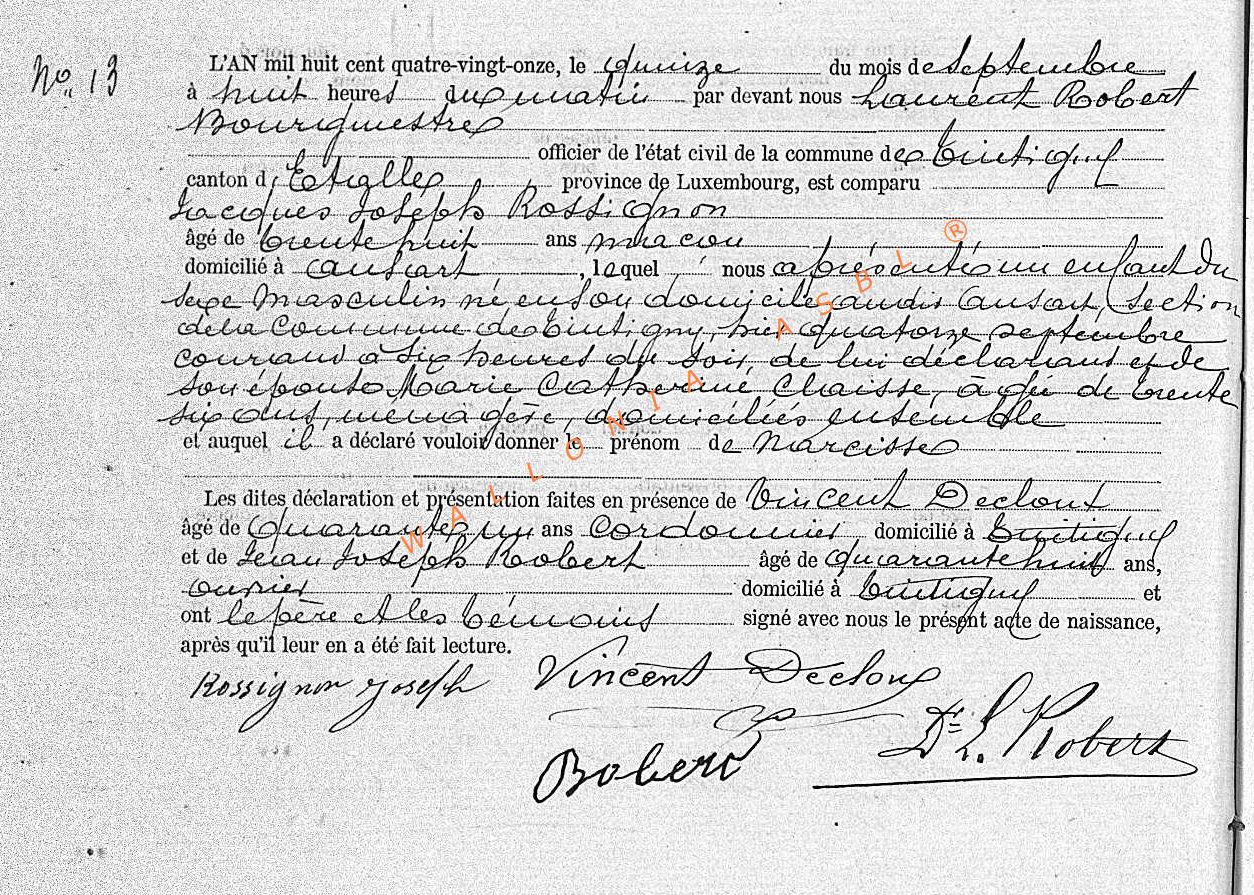 No 13
L'AN mil huit cent quatre-vingt-onze, le quinze du mois de Septembre
à huit heures du matin par devant nous Laurent Robert
Bourgmestre
officier de l'état civil de la commune de Tintigny
canton d'Etalle province de Luxembourg, est comparu
Jacques Joseph Rossignon
âgé de trente huit ans maçon
domicilié à ansart, lequel nous a présenté un enfant du
sexe masculin né en son domicile audit ansart, section
de la Commune de Tintigny, hier quatorze septembre
courant à six heures du soir, de lui déclarant et de
son épouse Marie Catherine Claisse, âgée de trente
six ans, menagère, domiciliés ensemble
et auquel il a déclaré vouloir donner le prénom de Narcisse
Les dites déclaration et présentation faites en présence de Vincent Decloux
âgé de quarante un ans Cordonnier domicilié à Tintigny
et de Jean Joseph Robert âgé de quarante huit ans,
ouvrier domicilié à Tintigny et
ont le père et les témoins signé avec nous le présent acte de naissance,
après qu'il leur en a été fait lecture.
Rossignon Joseph Vincent Decloux
Robert Dr L. Robert
WALLONIA ASBL ®